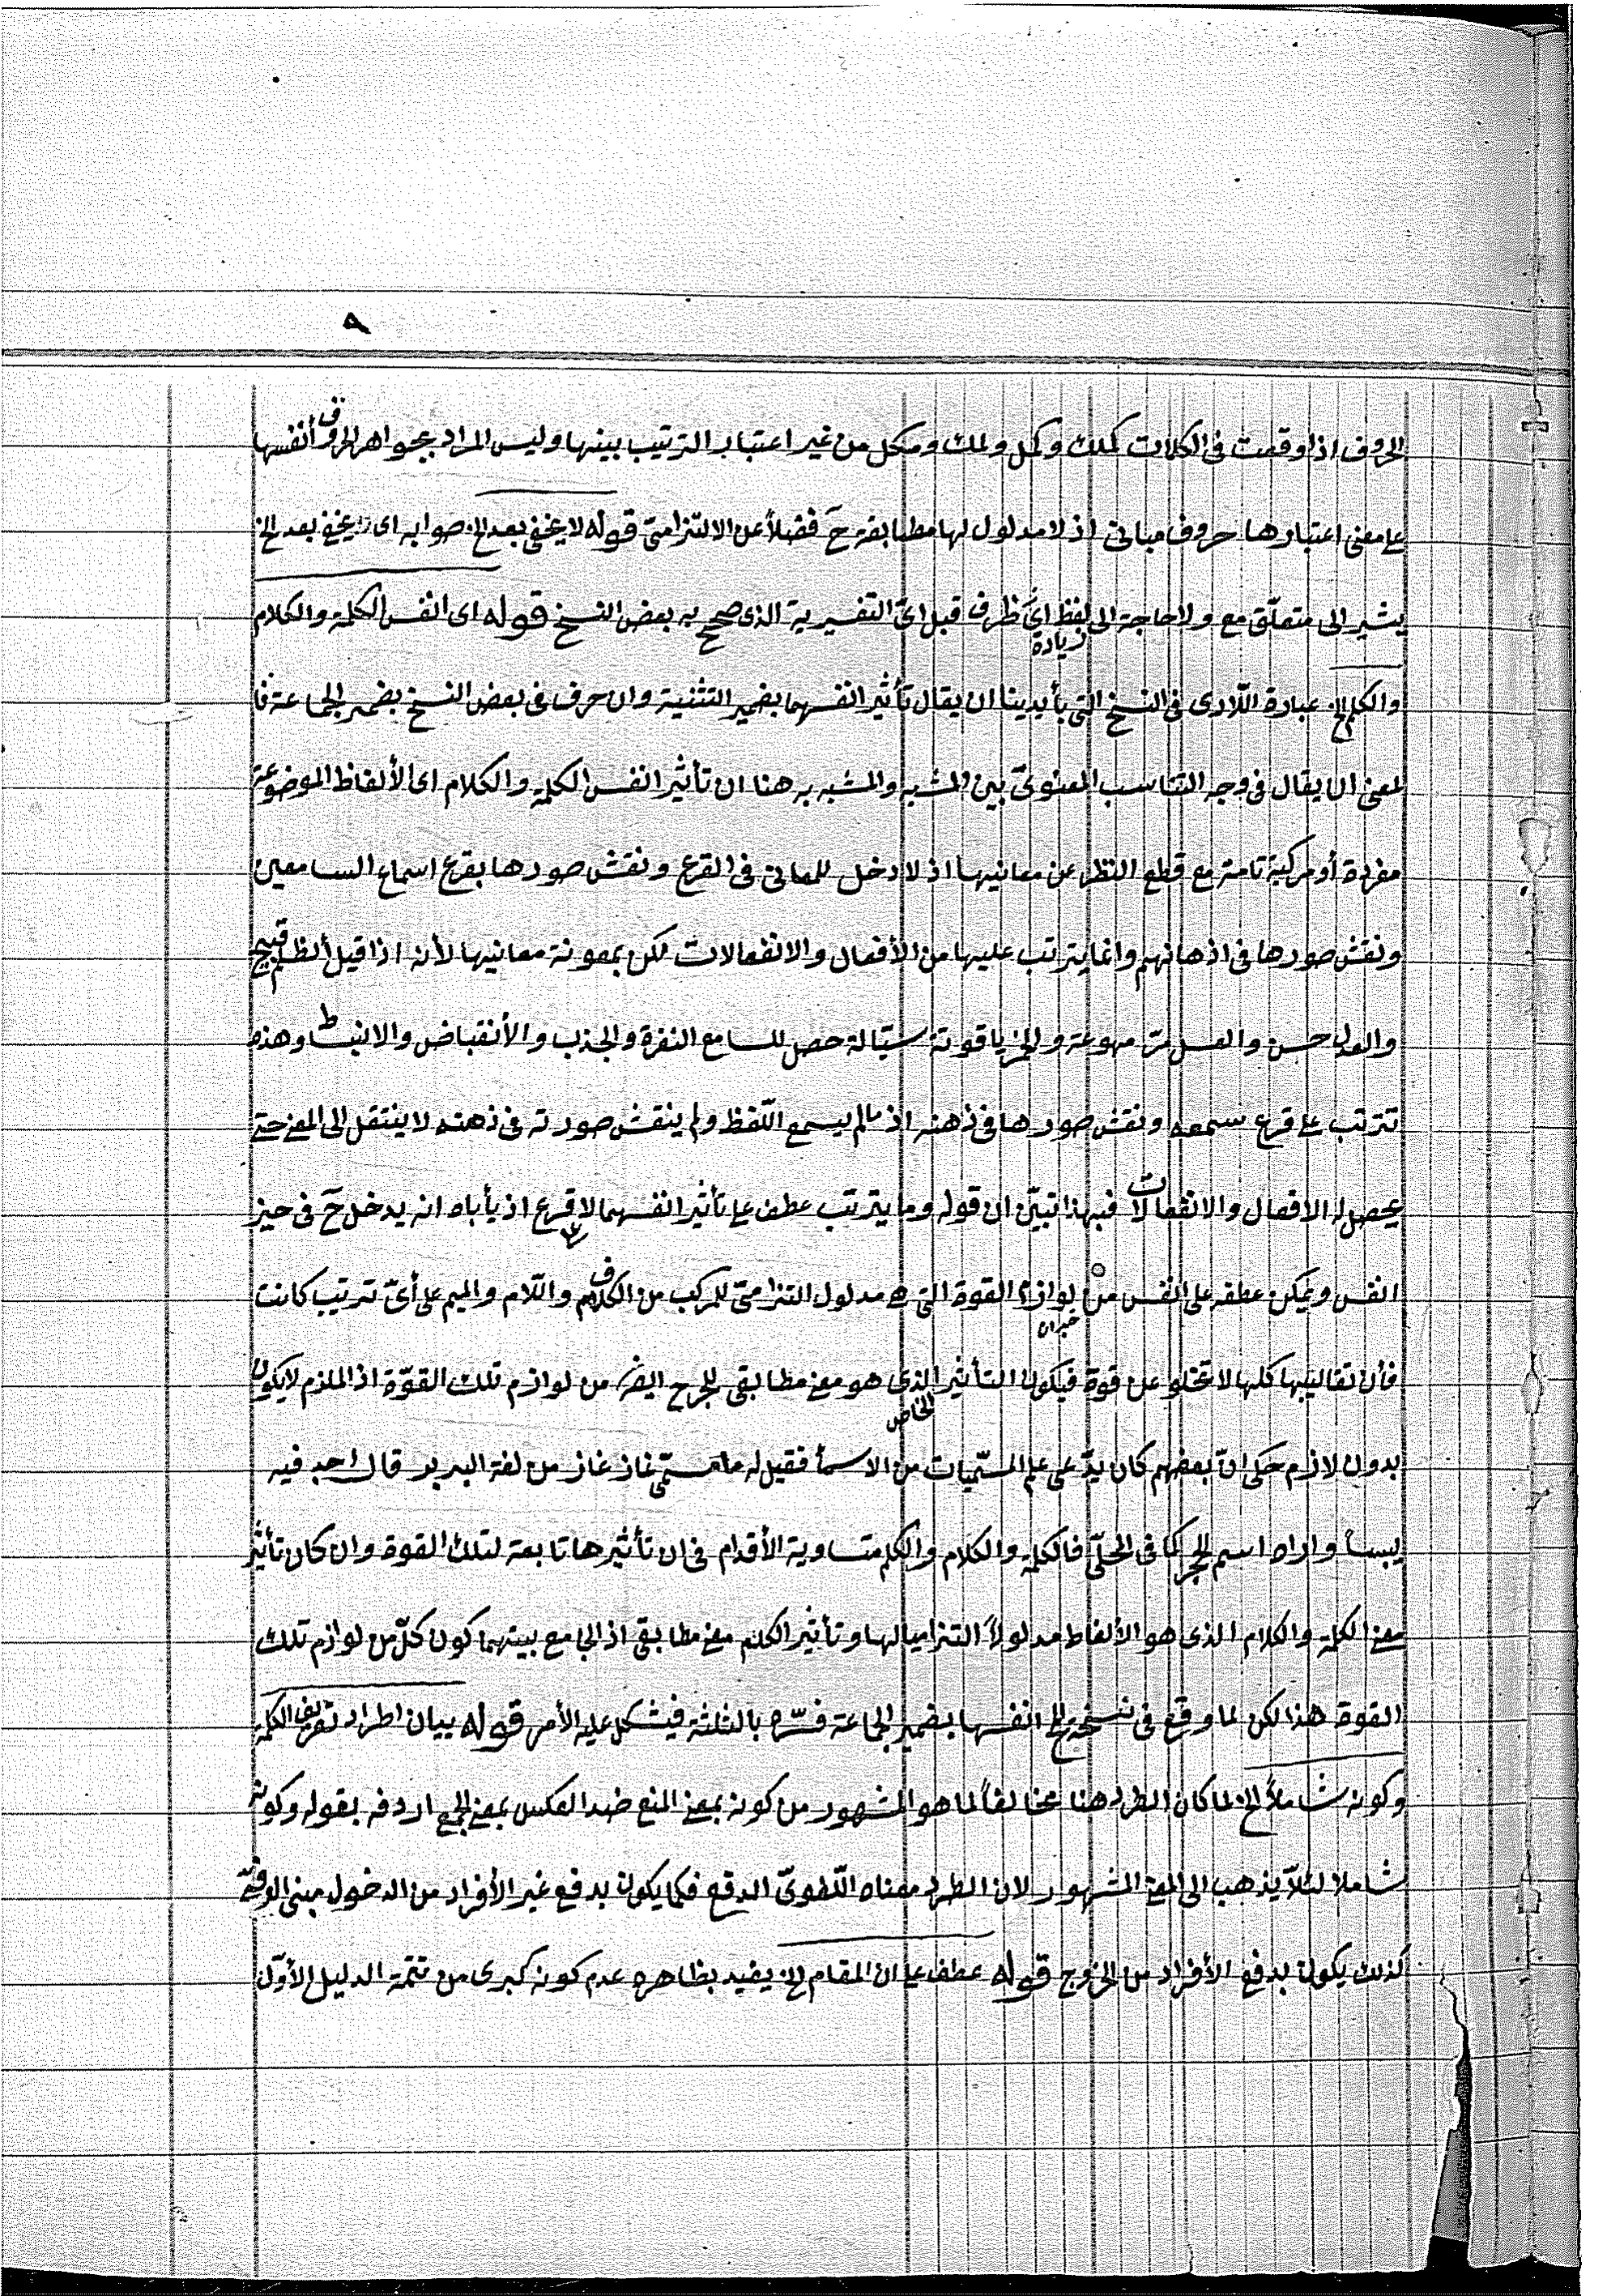 ٩
الحروف اذا وقعت فى الكلمات كملك وكمل ولمك ومكل من غير اعتبار الترتيب بينها وليس المراد بجواهر الحروف أنفسها
على معنى اعتبارها حروف مبانى اذ لا مدلول لها مطابقة ح فضلاً عن الالتزامىّ قوله لا يخفى بعد الخ صوابه اى لا يخفى بعد الخ
يشير الى متعلّق مع ولا حاجة الى زيادة لفظ اىّ ظرف قبل اىّ التفسيرية الذى صحح به بعض النسخ قوله اى انفس الكلمة والكلام
والكلم الخ عبارة اللّارى فى النسخ التى بأيدينا ان يقال تأثير انفسهما بضمير التثنية وان حرف فى بعض النسخ بضمير الجماعة فا
لمعنى ان يقال فى وجه التناسب المعنوىّ بين المشبه والمشبه به هنا ان تأثير انفس الكلمة والكلام اى الألفاظ الموضوعة
مفردة أو مركبة تامة مع قطع النظر عن معانيها اذ لا دخل للمعانى فى القرع ونقش صورها بقرع اسماع السامعين
ونقش صورها فى اذهانهم وانما يترتب عليها من الأفعال والانفعالات لكن بمعونة معانيها لأنه اذا قيل الظلم قبيح
والعدل حسن والعسل مرّ مهوعة والخمر ياقوتة سيّالة حصل للسامع النفرة والجذب والأنقباض والانبساط وهذه
تترتب على قرع سمعه ونقش صورها فى ذهنه اذ ما لم يسمع اللّفظ ولم ينقش صورته فى ذهنه لا ينتقل الى المعنى حتى
يحصل له الافعال والانفعالات فبهذا تبيّن ان قوله وما يترتب عطف على تأثير انفسهما لا قرع اذ يأباه انه يدخل ح فى حيز
انفس ويمكن عطفه على انفس من لوازم القوة التى هى مدلول التزامىّ للمركب من الكاف واللّام والميم على أىّ ترتيب كانت
خبران
فأن تقاليبها كلها لا تخلو عن قوة فيكون التأثير الخاص الذى هو معنى مطابقى للجرح ايضا من لوازم تلك القوّة اذ الملزم لا يكون
بدون لازم حكى انّ بعضهم كان يدّعى علم المسمّيات من الاسماء فقيل له ما مسمّى غاز غاز من لغة البربر قال اجد فيه
يبساً واراه اسم الحجر كما فى المحلّىّ فالكلمة والكلام والكلم متساوية الأقدام فى ان تأثيرها تابعة لتلك القوة وان كان تأثير
معنى الكلمة والكلام الذى هو الألفاظ مدلولاً التزاميا لها وتأثير الكلم معنى مطابقى اذ الجامع بينهما كون كلّ من لوازم تلك
القوة هذا لكن لما وقع فى نسخة الخ انفسها بضمير الجماعة فسّره بالثلثة فيشكل عليه الأمر قوله بيان اطراد تعريف الكلمة
وكونه شاملاً الخ لما كان الطرد هنا مخالفاً لما هو المشهور من كونه بمعنى المنع ضد العكس بمعنى الجمع اردفه بقوله وكونه
شاملا لئلّا يذهب الى المعنى المشهور لان الطرد معناه اللّغوىّ الدفع فكما يكون بدفع غير الأفراد من الدخول
كذلك يكون بدفع الأفراد من الخروج قوله عطف على ان المقام الخ يفيد بظاهره عدم كونه كبرى من تتمة الدليل الأوّل